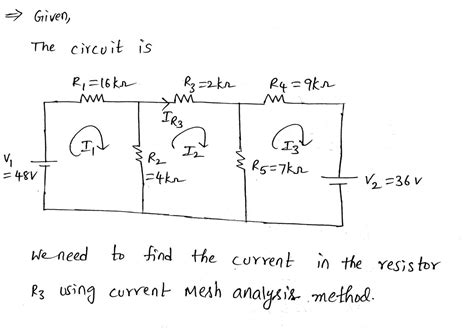 ⇒ Given,
The circuit is
R₁=16kΩ R₃=2kΩ R₄=9kΩ
I_R₃
I₁ I₂ I₃
V₁ = 48V
R₂ =4kΩ
R₅=7kΩ
V₂=36 V
We need to find the current in the resistor
R₃ using current Mesh analysis method.